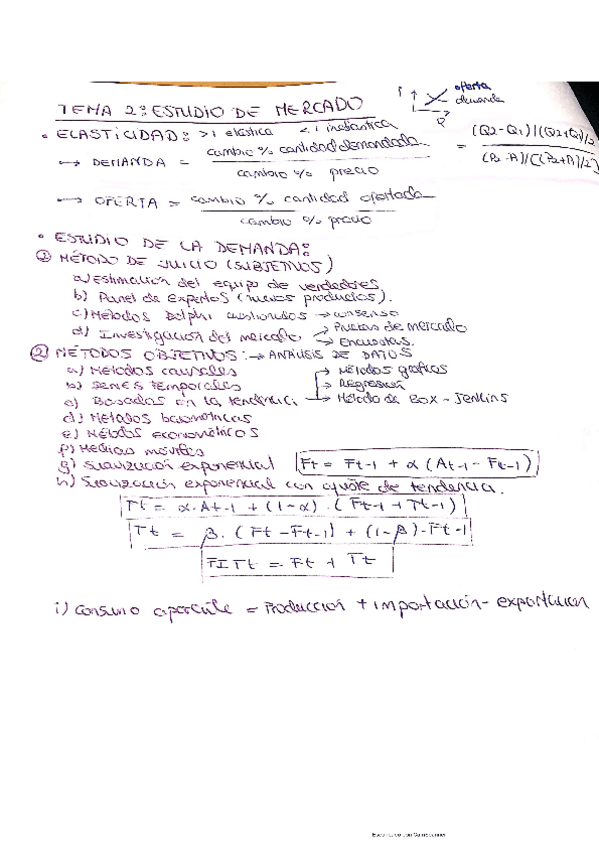 TEMA 2: ESTUDIO DE MERCADO
oferta
demanda
Q
• ELASTICIDAD: >1 elástica <1 inelástica
→ DEMANDA = cambio % cantidad demandada / cambio % precio = (Q2-Q1)/((Q2+Q1)/2) / (P2-P1)/((P2+P1)/2)
→ OFERTA = cambio % cantidad ofertada / cambio % precio
• ESTUDIO DE LA DEMANDA:
① MÉTODO DE JUICIO (SUBJETIVOS)
a) Estimación del equipo de vendedores
b) Panel de expertos (nuevos productos).
c) Métodos Delphi cuestionarios → consenso
d) Investigación del mercado → Pruebas de mercado
→ Encuestas.
② MÉTODOS OBJETIVOS: → ANÁLISIS DE DATOS
a) Métodos causales
b) SERIES TEMPORALES
c) Basados en la tendencia → Métodos gráficos
→ Regresión
→ Método de BOX - Jenkins
d) Métodos barométricos
e) Métodos econométricos
f) Medias móviles
g) Suavización exponencial Ft = Ft-1 + α (At-1 - Ft-1)
h) Suavización exponencial con ajuste de tendencia.
Ft = α·At-1 + (1-α)·(Ft-1 + Tt-1)
Tt = β·(Ft - Ft-1) + (1-β)·Tt-1
FITt = Ft + Tt
i) Consumo aparente = Producción + importación - exportación
Escaneado con CamScanner